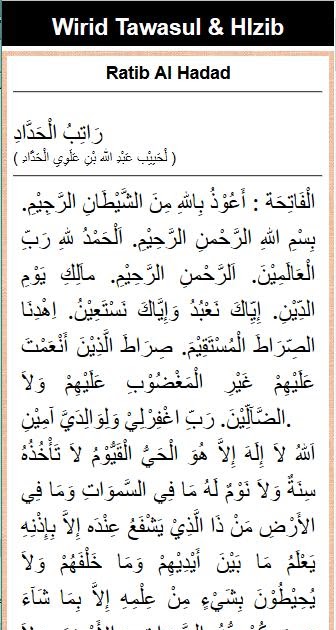 Wirid Tawasul & HIzib
Ratib Al Hadad
رَاتِبُ الْحَدَّادِ
( لْحَبِيْب عَبْدِ الله بْنِ عَلَوِي الْحَدَّادِ )
الْفَاتِحَة : أَعُوْذُ بِاللهِ مِنَ الشَّيْطَانِ الرَّجِيْمِ.
بِسْمِ اللهِ الرَّحْمنِ الرَّحِيْمِ. اَلْحَمْدُ للهِ رَبِّ
الْعَالَمِيْنَ. اَلرَّحْمنِ الرَّحِيْمِ. مالِكِ يَوْمِ
الدِّيْنِ. إِيَّاكَ نَعْبُدُ وَإِيَّاكَ نَسْتَعِيْنُ. اِهْدِنَا
الصِّرَاطَ الْمُسْتَقِيْمَ. صِرَاطَ الَّذِيْنَ أَنْعَمْتَ
عَلَيْهِمْ غَيْرِ الْمَغْضُوْبِ عَلَيْهِمْ وَلاَ
الضَّآلِّيْنَ. رَبِّ اغْفِرْلِيْ وَلِوَالِدَيَّ آمِيْنِ.
اَللهُ لاَ إِلَهَ إِلاَّ هُوَ الْحَيُّ الْقَيُّوْمُ لاَ تَأْخُذُهُ
سِنَةٌ وَلاَ نَوْمٌ لَهُ مَا فِي السَّموَاتِ وَمَا فِي
الأَرْضِ مَنْ ذَا الَّذِيْ يَشْفَعُ عِنْدَه إِلاَّ بِإِذْنِهِ
يَعْلَمُ مَا بَيْنَ أَيْدِيْهِمْ وَمَا خَلْفَهُمْ وَلاَ
يُحِيْطُوْنَ بِشَيْءٍ مِنْ عِلْمِهِ إِلاَّ بِمَا شَآءَ